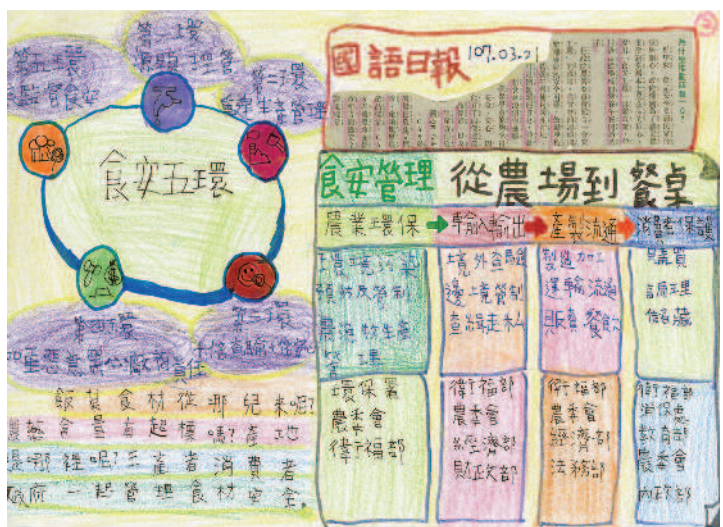 第一環
源頭管理
第五環
全民監督食安
第二環
重建生產管理
食安五環
第四環
加重惡意黑心廠商責任
第三環
十倍查驗
飯菜食材從哪兒來呢?
農藥含量有超標嗎?產地
是哪裡呢?生產者消費者
政府一起管理食材安全。
國語日報 107.03.21
食安管理 從農場到餐桌
農業環保
輸入輸出
產製流通
消費者保護
環境污染
預防及管制
農漁牧生產
管理
境外查驗
邊境管制
查緝走私
製造加工
運輸流通
販賣餐飲
購買
調理
儲藏
環保署
農委會
衛福部
衛福部
農委會
經濟部
財政部
衛福部
農委會
經濟部
法務部
衛福部
消保處
教育部
農委會
內政部